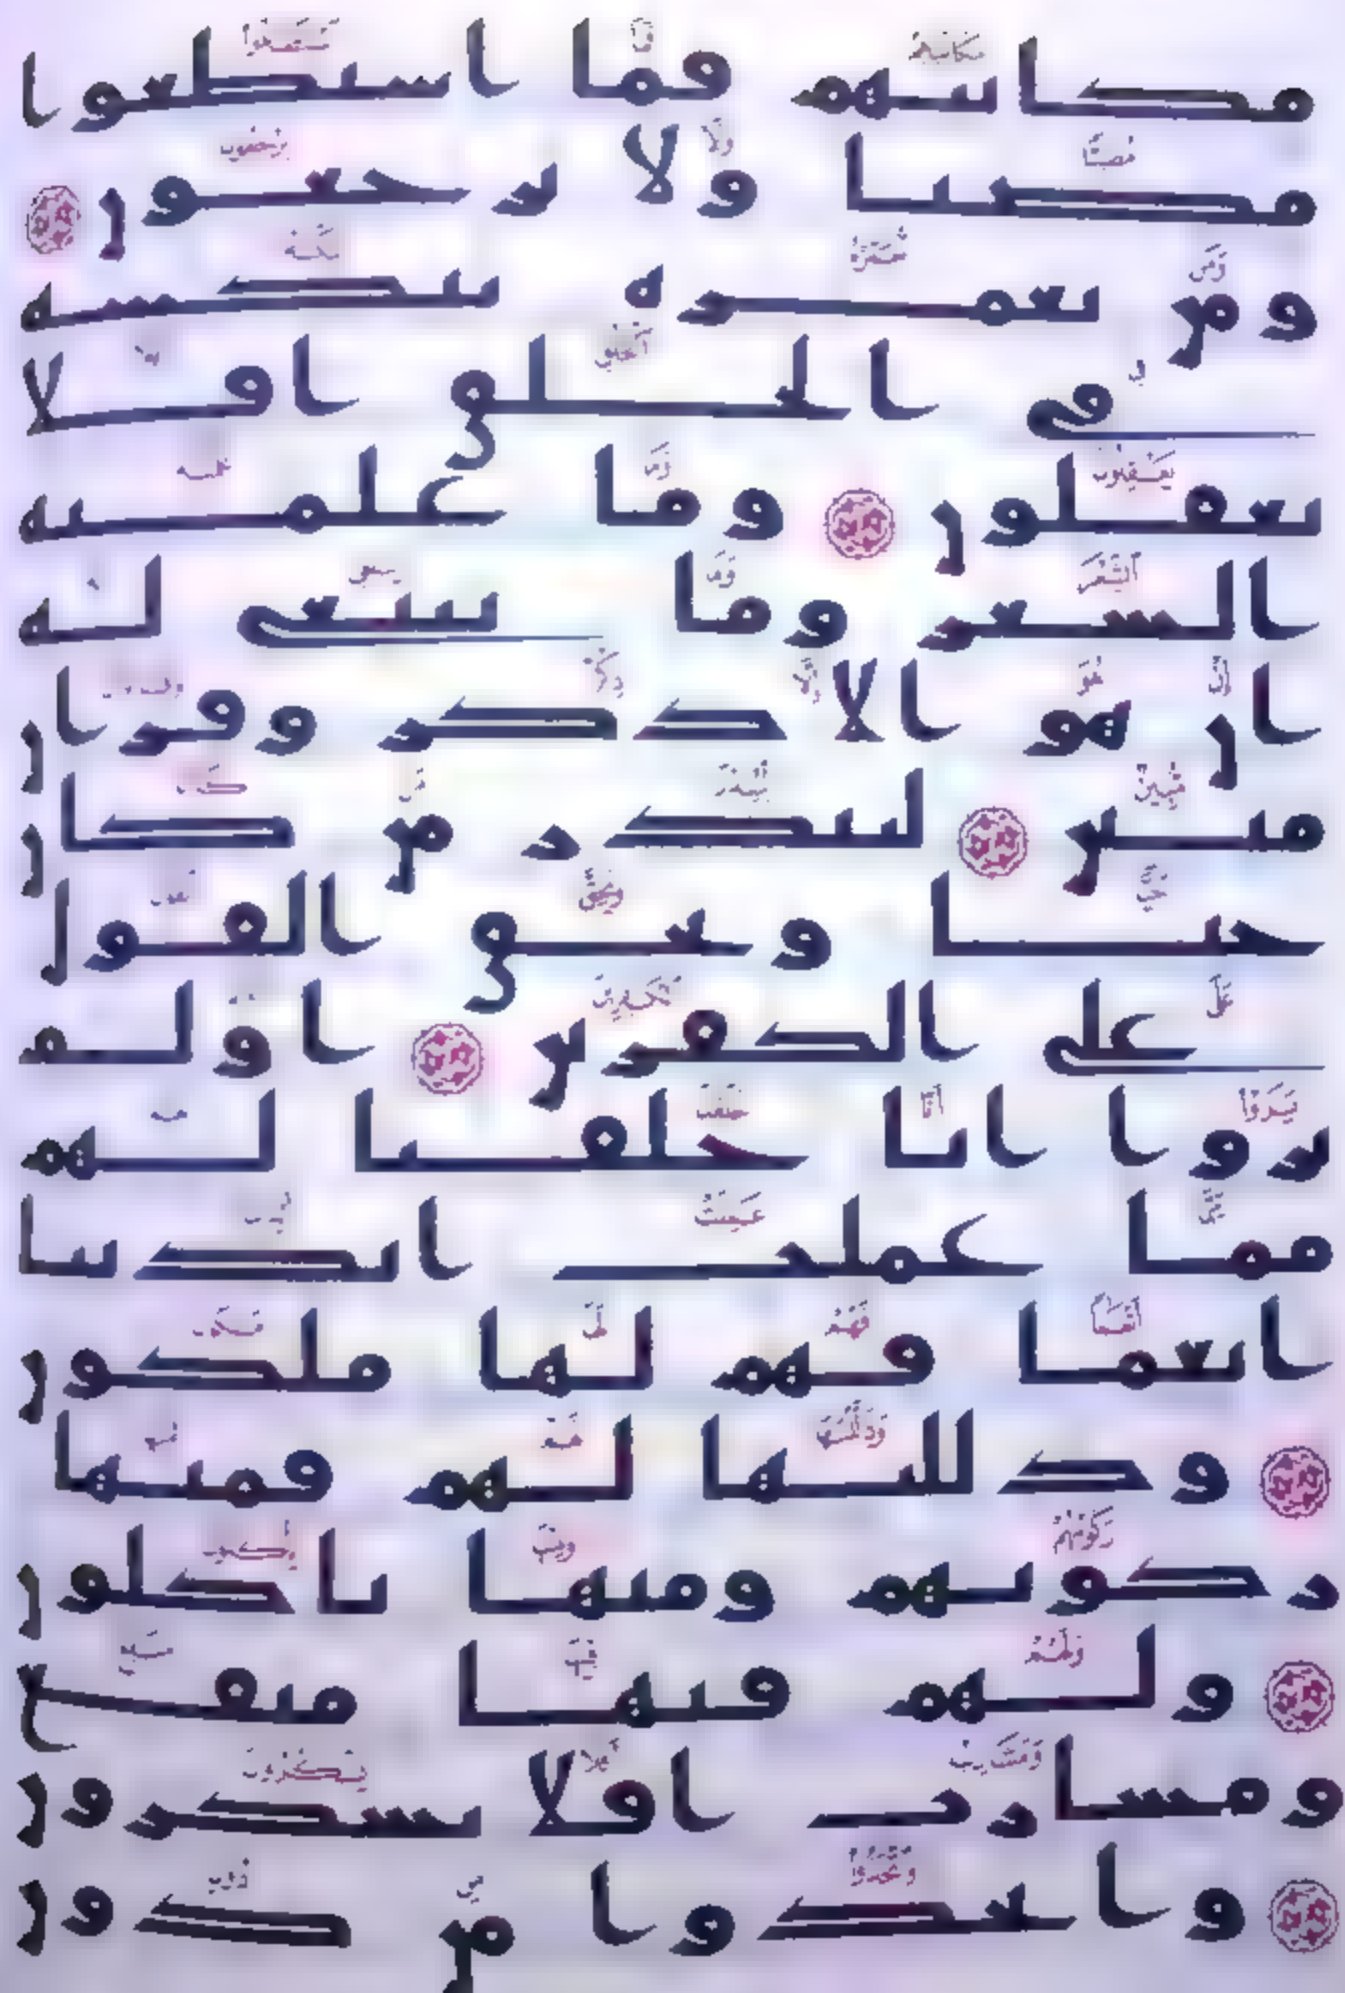 مكانتهم فما استطعوا
مضيا ولا يرجعون
ومن نعمره ننكسه
في الخلق افلا
يعقلون وما علمنه
الشعر وما ينبغي له
ان هو الا ذكر وقران
مبين لينذر من كان
حيا ويحق القول
على الكفرين اولم
يروا انا خلقنا لهم
مما عملت ايدينا
انعما فهم لها ملكون
وذللنها لهم فمنها
ركوبهم ومنها ياكلون
ولهم فيها منفع
ومشارب افلا يشكرون
واتخذوا من دون